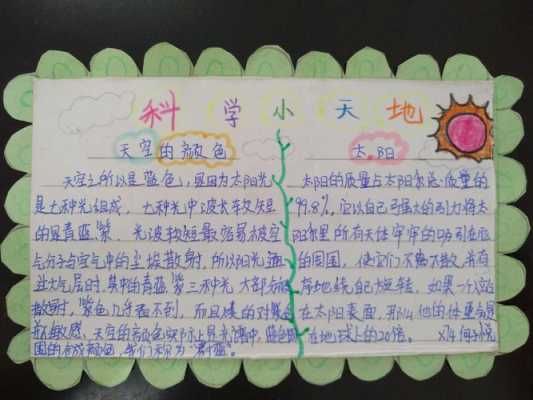 科学小天地
天空的颜色
天空之所以是蓝色，是因为太阳光
是七种光组成，七种光中波长较短
的是青蓝紫，光波较短最容易被空
气分子与空气中的尘埃散射，所以阳光
过大气层时，其中的青蓝紫三种光大部分
散射，紫色几乎看不到，而且
敏感，天空的颜色实际上是光谱中，蓝色
国的合成颜色，我们称为"蔚蓝"。
太阳
太阳的质量占太阳系总质量的
99.8%，它以自己强大的引力将太
阳系里所有天体牢牢的吸引在
的周围，使它们不散，有
地绕自己旋转，如果一个人站
在太阳表面，那么他的体重会是
在地球上的20倍。